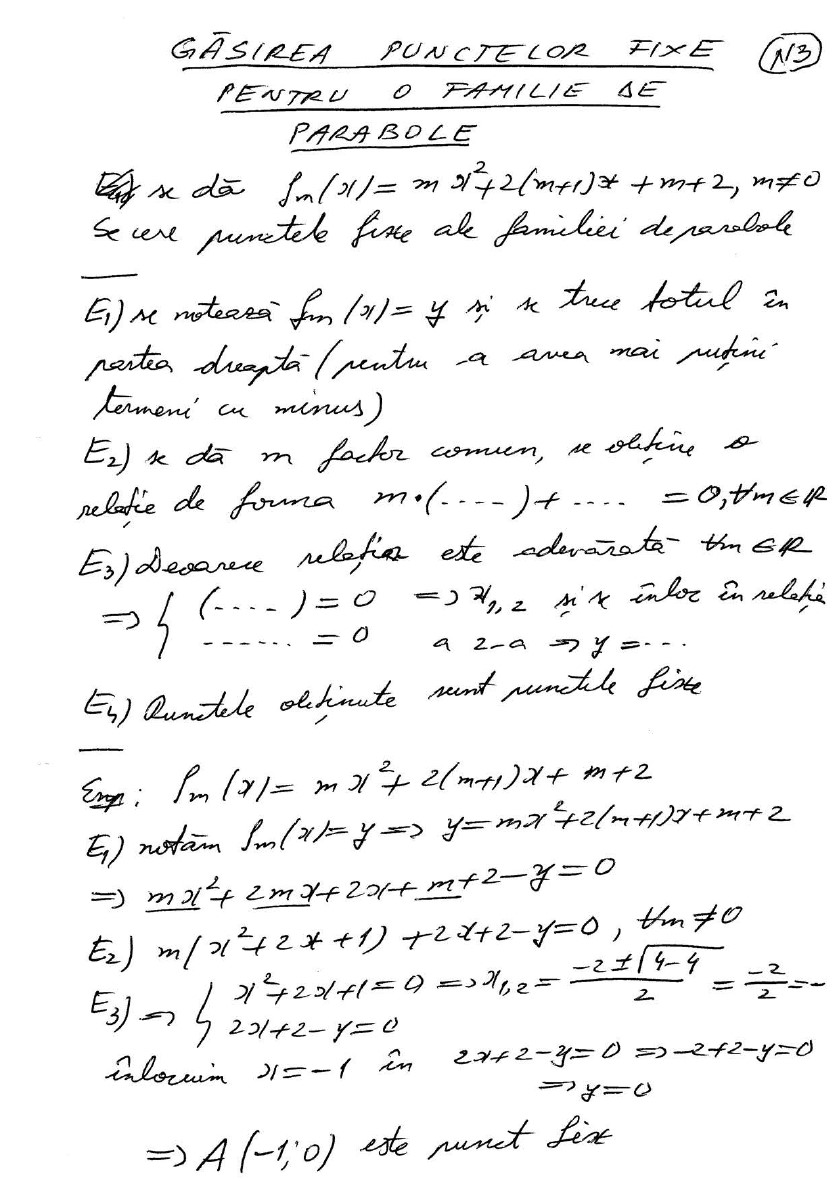 GĂSIREA PUNCTELOR FIXE N3
PENTRU O FAMILIE DE
PARABOLE
se dă fm(x)=mx²+2(m+1)x+m+2, m≠0
Se cere punctele fixe ale familiei de parabole
E₁) se notează fm(x)=y și se trece totul în
partea dreaptă (pentru a avea mai puțini
termeni cu minus)
E₂) se dă m factor comun, se obține o
relație de forma m·(....)+ .... =0, ∀m∈R
E₃) Deoarece relația este adevărată ∀m∈R
=> { (....)=0 => x₁,₂ și se înloc în relația
...... =0 a 2-a => y=...
E₄) Punctele obținute sunt punctele fixe
Exp: fm(x)=mx²+2(m+1)x+m+2
E₁) notăm fm(x)=y => y=mx²+2(m+1)x+m+2
=> mx²+2mx+2x+m+2-y=0
E₂) m(x²+2x+1)+2x+2-y=0, ∀m≠0
E₃) => { x²+2x+1=0 => x₁,₂= (-2±√4-4)/2 = -2/2 =-
2x+2-y=0
înlocuim x=-1 în 2x+2-y=0 => -2+2-y=0
=> y=0
=> A(-1;0) este punct fix